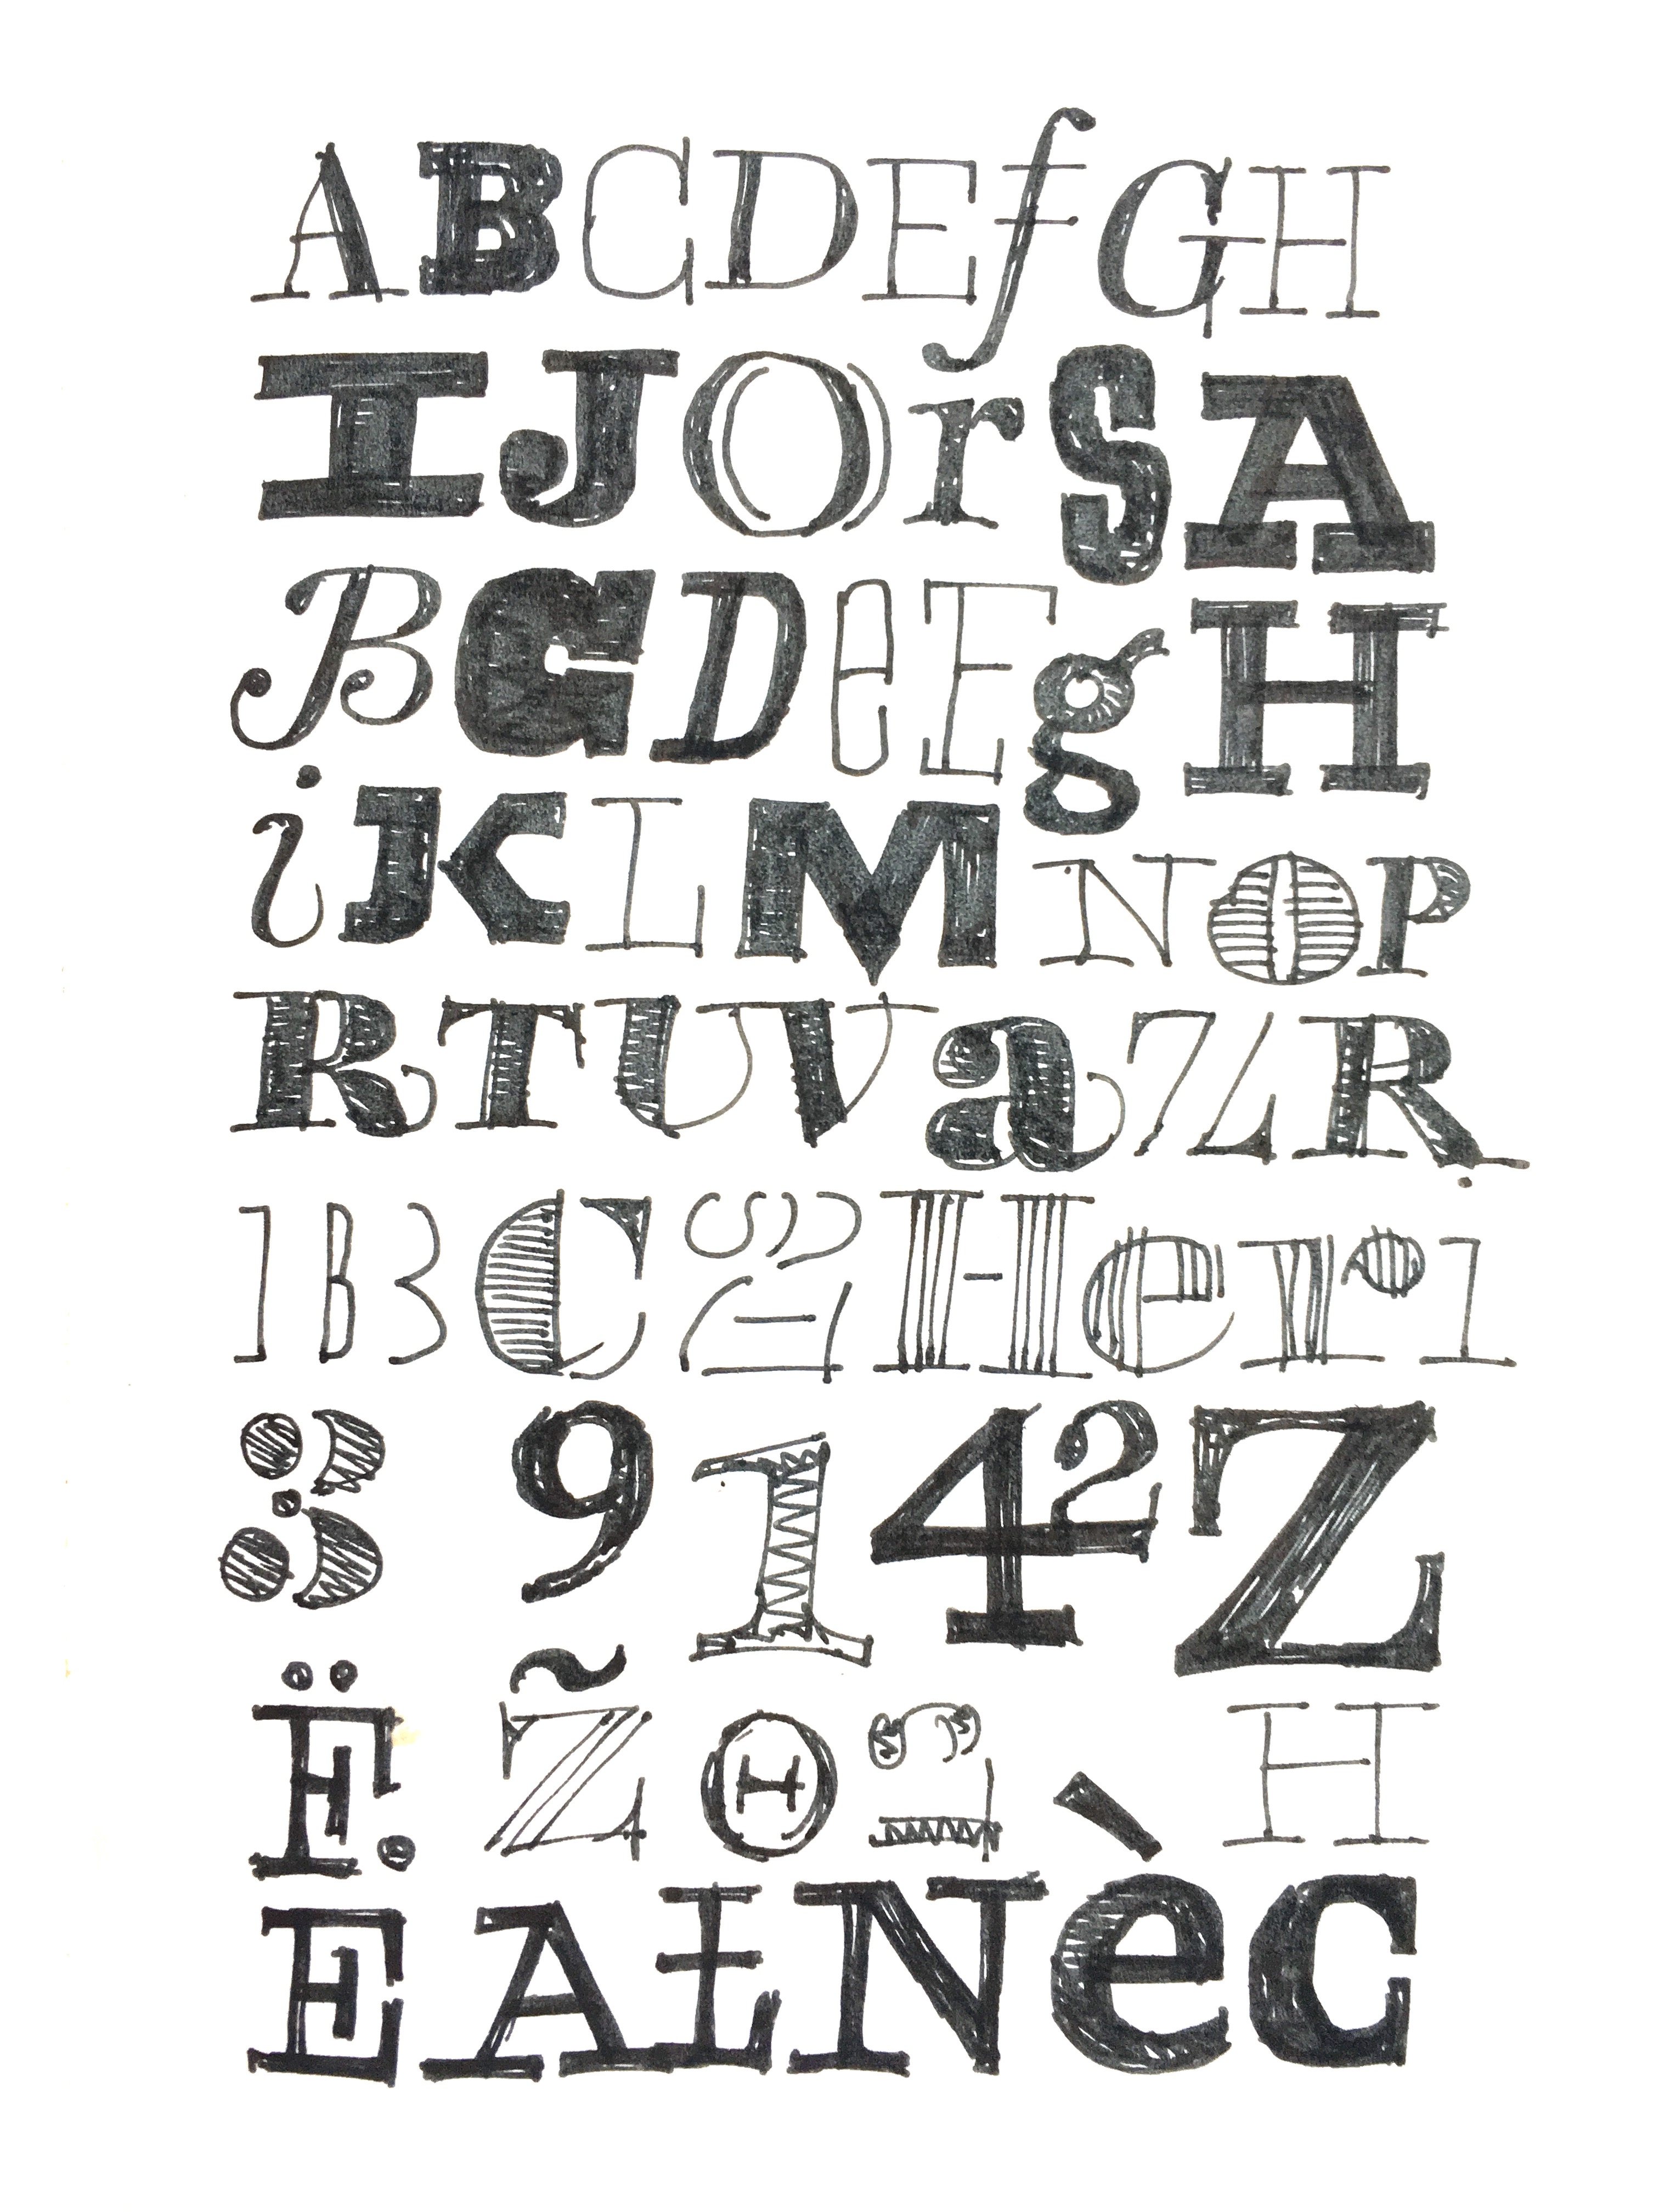 A B C D E f G H
I J O r S A
B G D e E g H
i K L M N O P
R T U V a Z R
B 3 C H e r 1
9 1 4 2 Z
Ë Z̃ H
E A Ł N è C